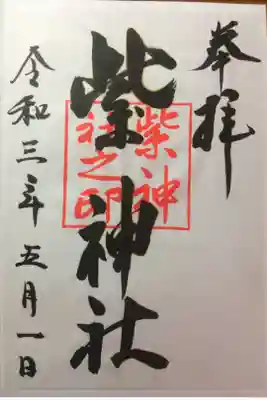 奉拝
柴神社
柴神
社之印
令和三年五月一日